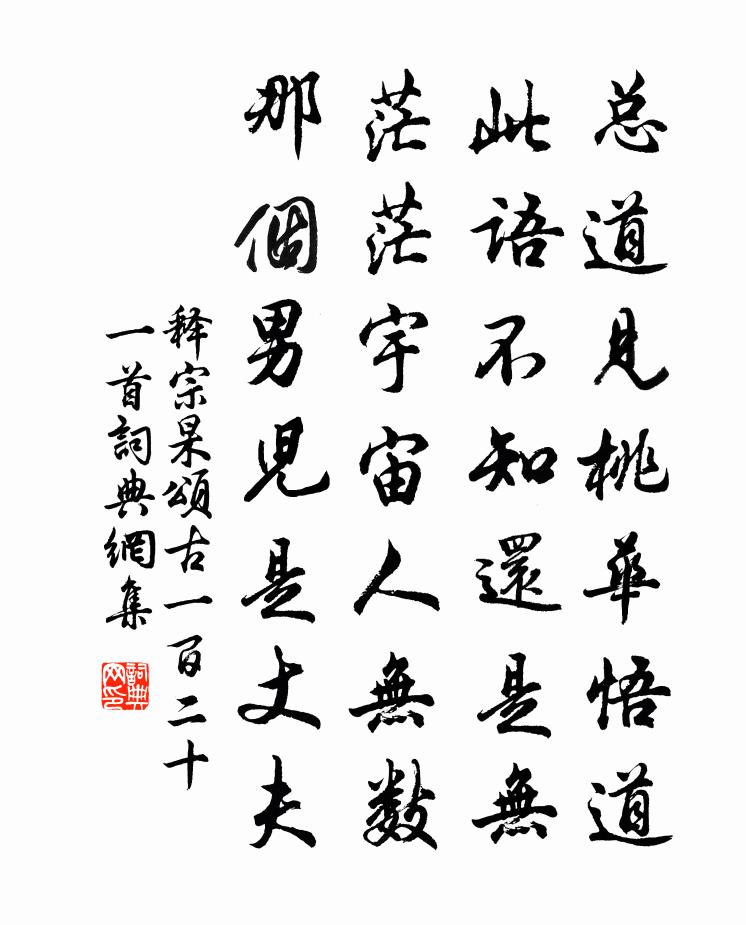 总道見桃華悟道
此語不知還是無
茫茫宇宙人無数
那個男児是丈夫
释宗杲頌古一百二十
一首詞典網集
詞典网印